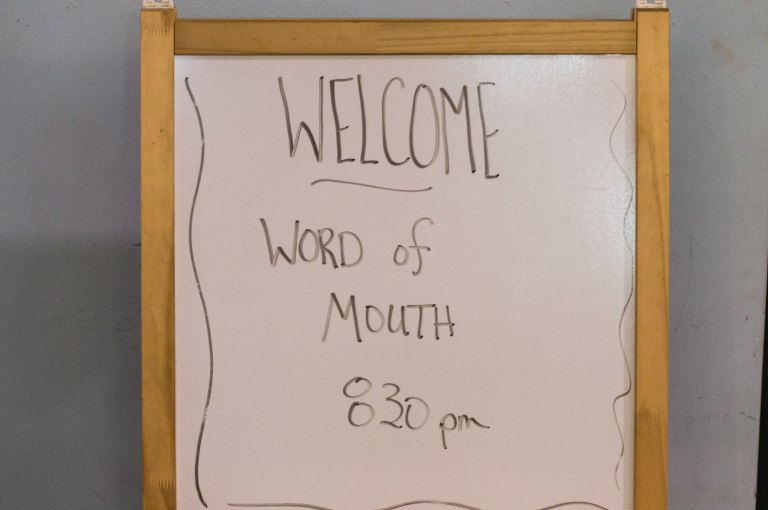 WELCOME
WORD of
MOUTH
830 pm